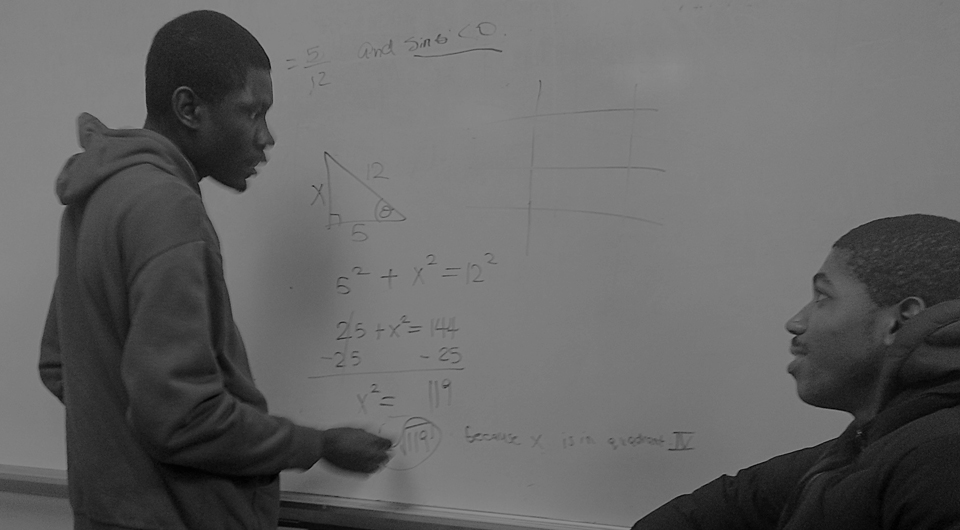 = 5/12 and Sinθ < 0.
12
X
θ
5
5² + x² = 12²
25 + x² = 144
-25 - 25
x² = 119
√119 because x is in quadrant IV